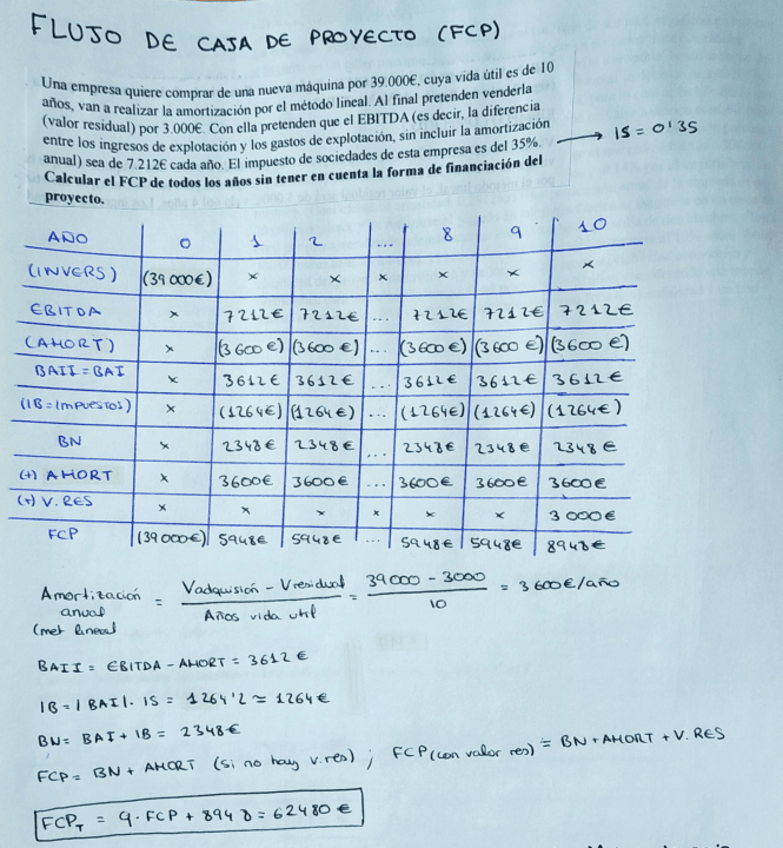 FLUJO DE CAJA DE PROYECTO (FCP)
Una empresa quiere comprar de una nueva máquina por 39.000€, cuya vida útil es de 10
años, van a realizar la amortización por el método lineal. Al final pretenden venderla
(valor residual) por 3.000€. Con ella pretenden que el EBITDA (es decir, la diferencia
entre los ingresos de explotación y los gastos de explotación, sin incluir la amortización
anual) sea de 7.212€ cada año. El impuesto de sociedades de esta empresa es del 35%. → IS = 0'35
Calcular el FCP de todos los años sin tener en cuenta la forma de financiación del
proyecto.
AÑO 0 1 2 ... 8 9 10
(INVERS) (39000€) x x x x x x
EBITDA x 7212€ 7212€ ... 7212€ 7212€ 7212€
(AMORT) x (3600€) (3600€) ... (3600€) (3600€) (3600€)
BAII = BAI x 3612€ 3612€ ... 3612€ 3612€ 3612€
(IB = Impuestos) x (1264€) (1264€) ... (1264€) (1264€) (1264€)
BN x 2348€ 2348€ ... 2348€ 2348€ 2348€
(+) AMORT x 3600€ 3600€ ... 3600€ 3600€ 3600€
(+) V.RES x x x x x x 3000€
FCP (39000€) 5948€ 5948€ ... 5948€ 5948€ 8948€
Amortización anual (met lineal) = Vadquisión - Vresidual / Años vida util = 39000 - 3000 / 10 = 3600€/año
BAII = EBITDA - AMORT = 3612€
IB = |BAI|. IS = 1264'2 ≃ 1264€
BN = BAI + IB = 2348€
FCP = BN + AMORT (si no hay v.res) ; FCP (con valor res) = BN + AMORT + V. RES
FCP_T = 9·FCP + 8948 = 62480€